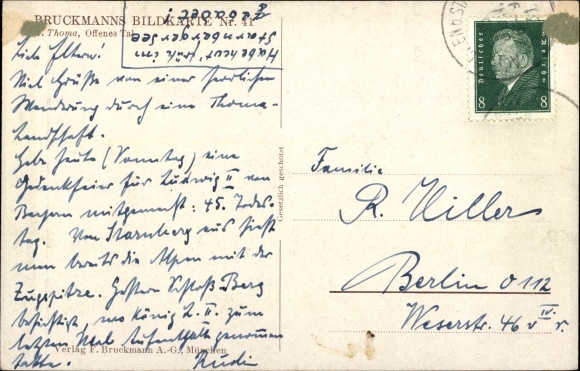 BRUCKMANNS BILDKARTE Nr. 41
H. Thoma, Offenes Tal
Habe heut' früh im
Starnberger See
gebadet!
Liebe Eltern!
Viel Grüße von einer herrlichen
Wanderung durch eine Thoma-
Landschaft.
Habe heute (Sonntag) eine
Gedenkfeier für Ludwig II von
Bayern mitgemacht: 45. Todes-
tag. Von Starnberg aus sieht
man bereits die Alpen mit der
Zugspitze. Gestern Schloß Berg
besichtigt, wo König L. II. zum
letzten Mal Aufenthalt genommen
hatte. Rudi
Verlag F. Bruckmann A.-G., München
Gesetzlich geschützt
Deutsches Reich
8 8
Familie
R. Hiller
Berlin O 112
Weserstr. 46 v IV. r.